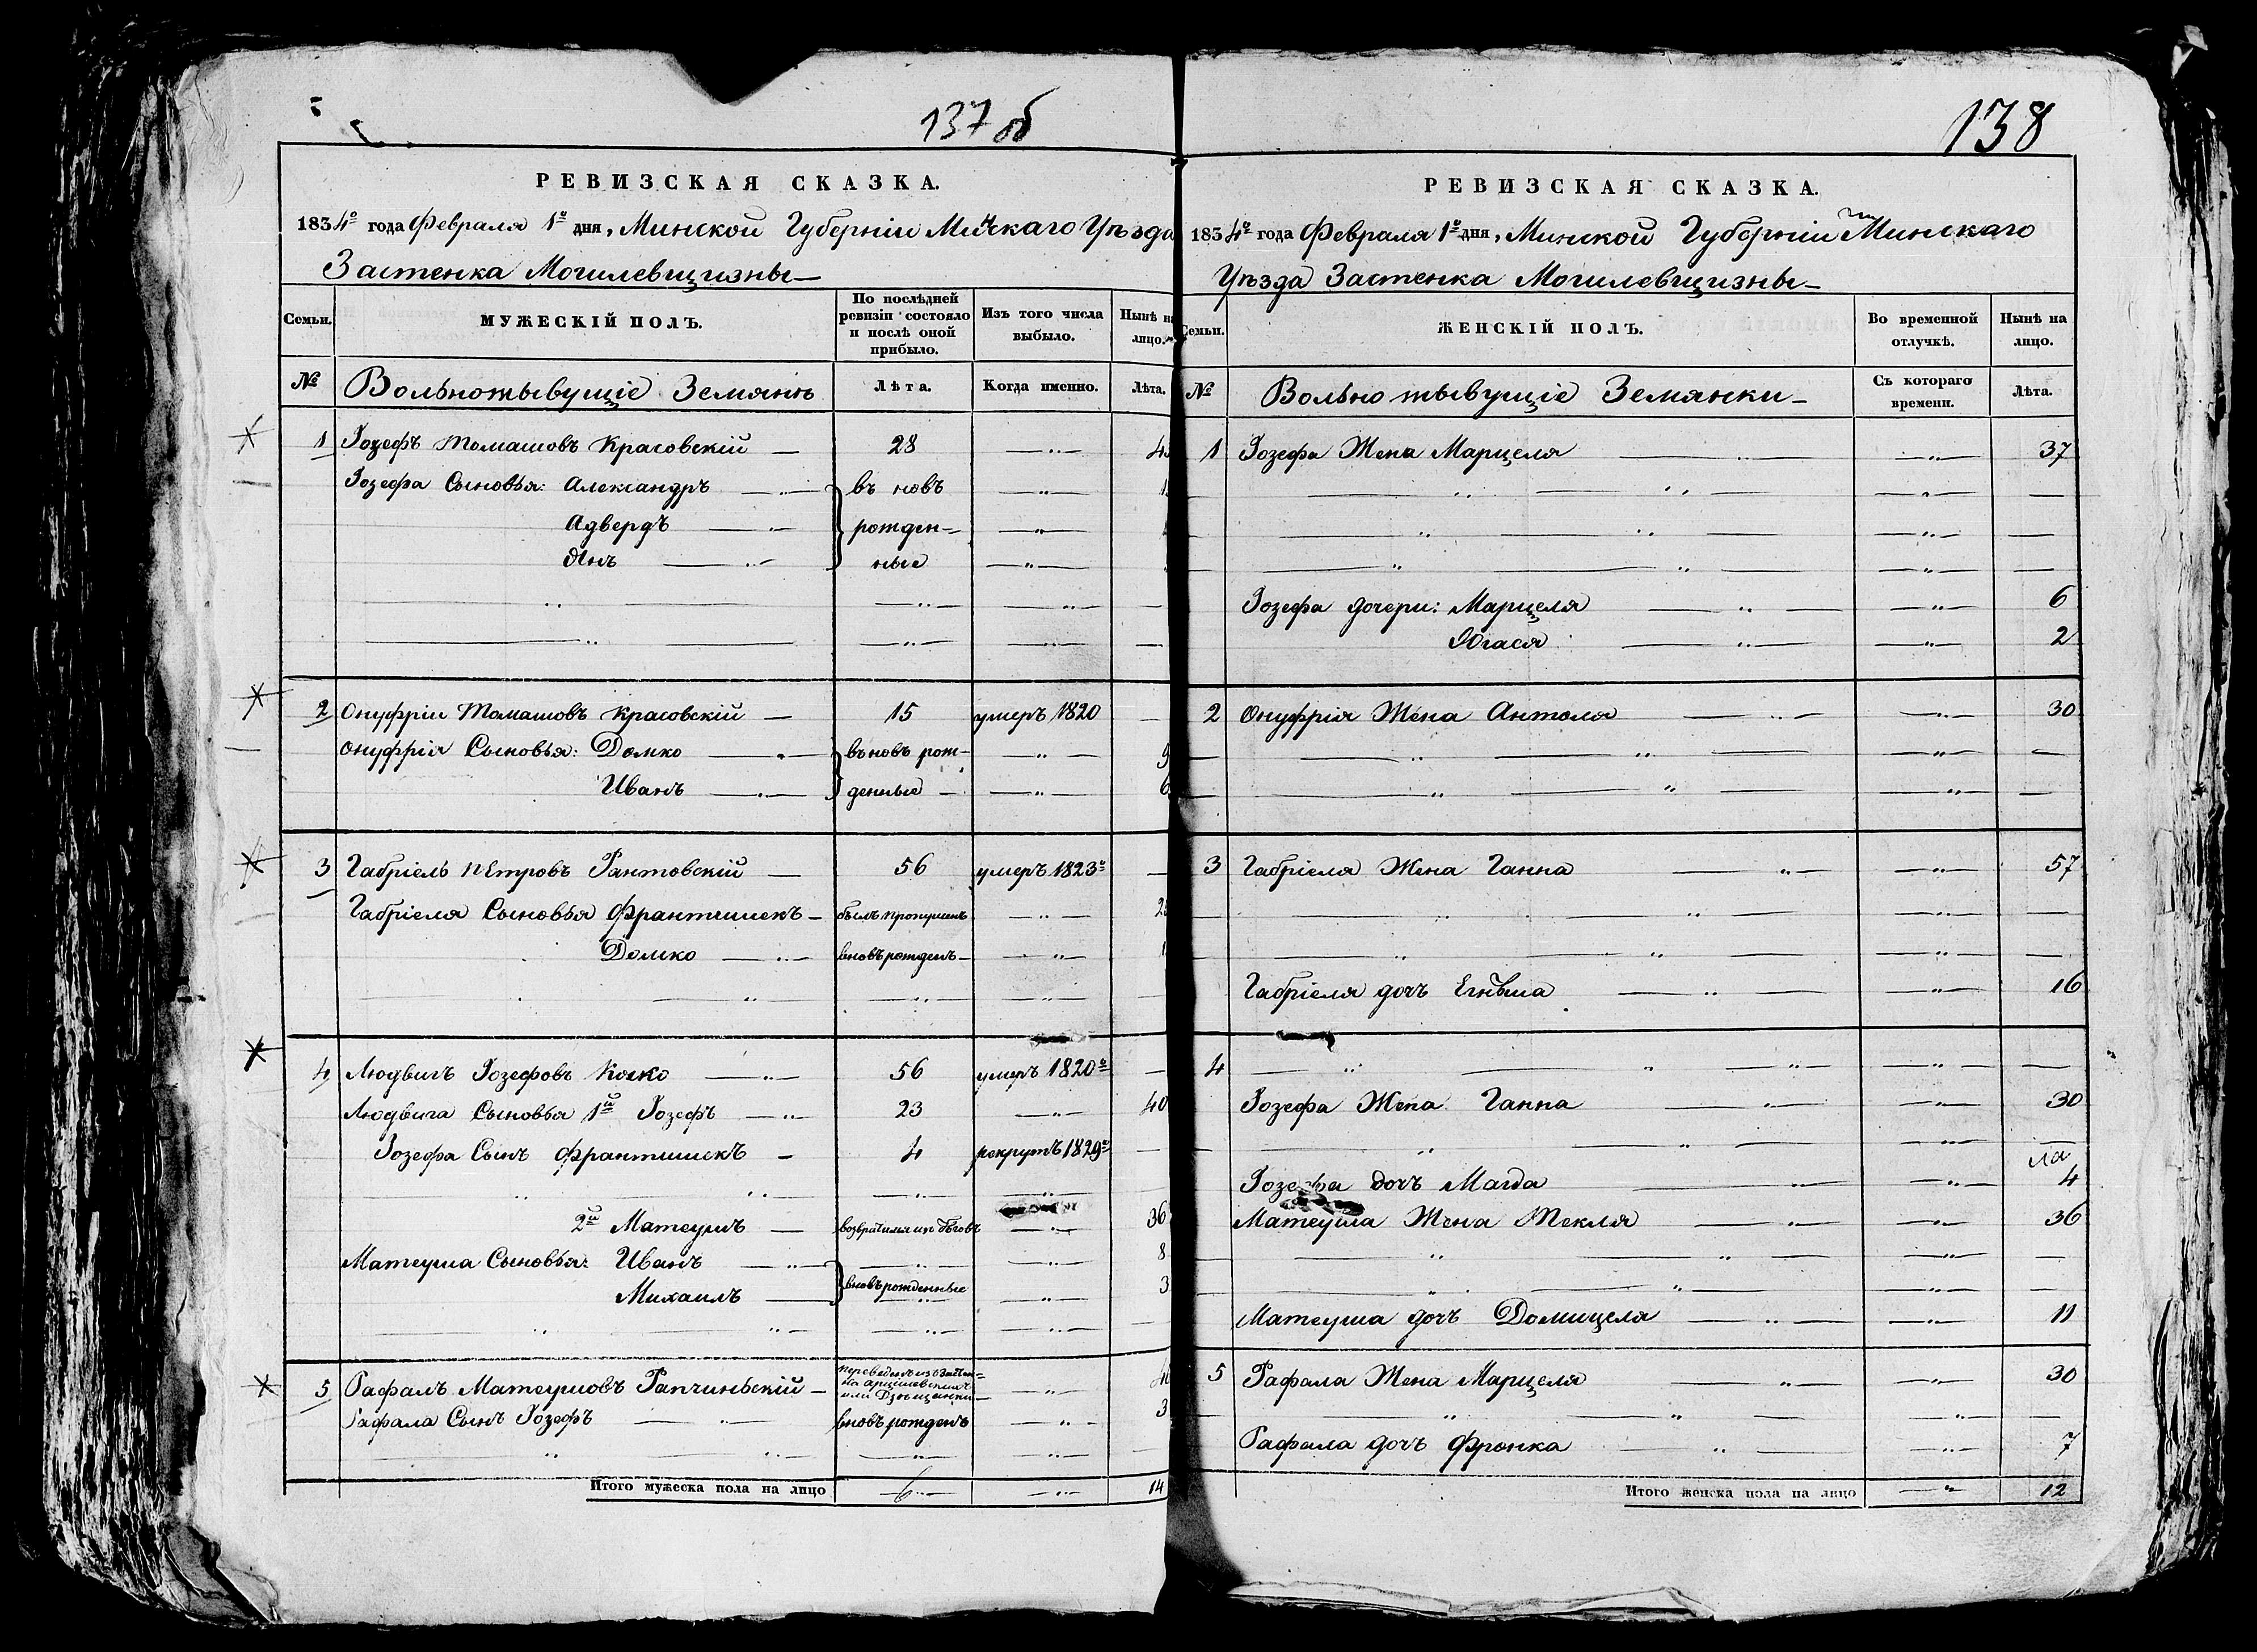 137 об
РЕВИЗСКАЯ СКАЗКА.
1834го года Февраля 1го дня, Минской Губерніи Уѣзда
Застенка Могилевщизны
Семьи. МУЖЕСКІЙ ПОЛЪ. По послѣдней ревизіи состояло и послѣ оной прибыло. Изъ того числа выбыло. Нынѣ на лицо.
№ Вольножывущіе Земяне Лѣта. Когда именно. Лѣта.
1 Іозефъ Томашовъ Красовскій — 28
Іозефа Сыновья: Александръ въ новъ
Адвердъ рожден-
Янъ ные
2 Онуфрій Томашовъ Красовскій — 15 умеръ 1820
Онуфрія Сыновья: Домко въновъ рож- 9
Иванъ денные 6
3 Габріель Петровъ — 56 умеръ 1823
Габріеля Сыновья Франтишекъ — былъ пропущенъ
Домко вновь рожденъ
4 Людвигъ Іозефовъ Коско 56 умеръ 1820
Людвига Сыновья 1й Іозефъ 23 40
Іозефа Сынъ Франтишекъ — 4 рекрутъ 1829
2й Матеушъ — возвратился изъ бѣговъ 36
Матеуша Сыновья: Иванъ 8
Михаилъ вновь рожденные 3
5 Рафалъ Матеушовъ Рапчиньскій — переведенъ изъ
Рафала Сынъ Іозефъ вновь рожденъ 3
Итого мужеска пола на лицо 6 14
138
РЕВИЗСКАЯ СКАЗКА.
1834го года Февраля 1го дня, Минской Губерніи Минскаго
Уѣзда Застенка Могилевщизны
Семьи. ЖЕНСКІЙ ПОЛЪ. Во временной отлучкѣ. Нынѣ на лицо.
№ Вольно жывущіе Земянки Съ котораго времени. Лѣта.
1 Іозефа Жена Марцеля 37
Іозефа дочери: Марцеля 6
Югася 2
2 Онуфрія Жена Антоля 30
3 Габріеля Жена Ганна 57
Габріеля дочь 16
4
Іозефа Жена Ганна 30
Іозефа дочь Магда 4
Матеуша Жена Текля 36
Матеуша дочь Домицеля 11
5 Рафала Жена Марцеля 30
Рафала дочь Фронка 7
Итого женска пола на лицо 12